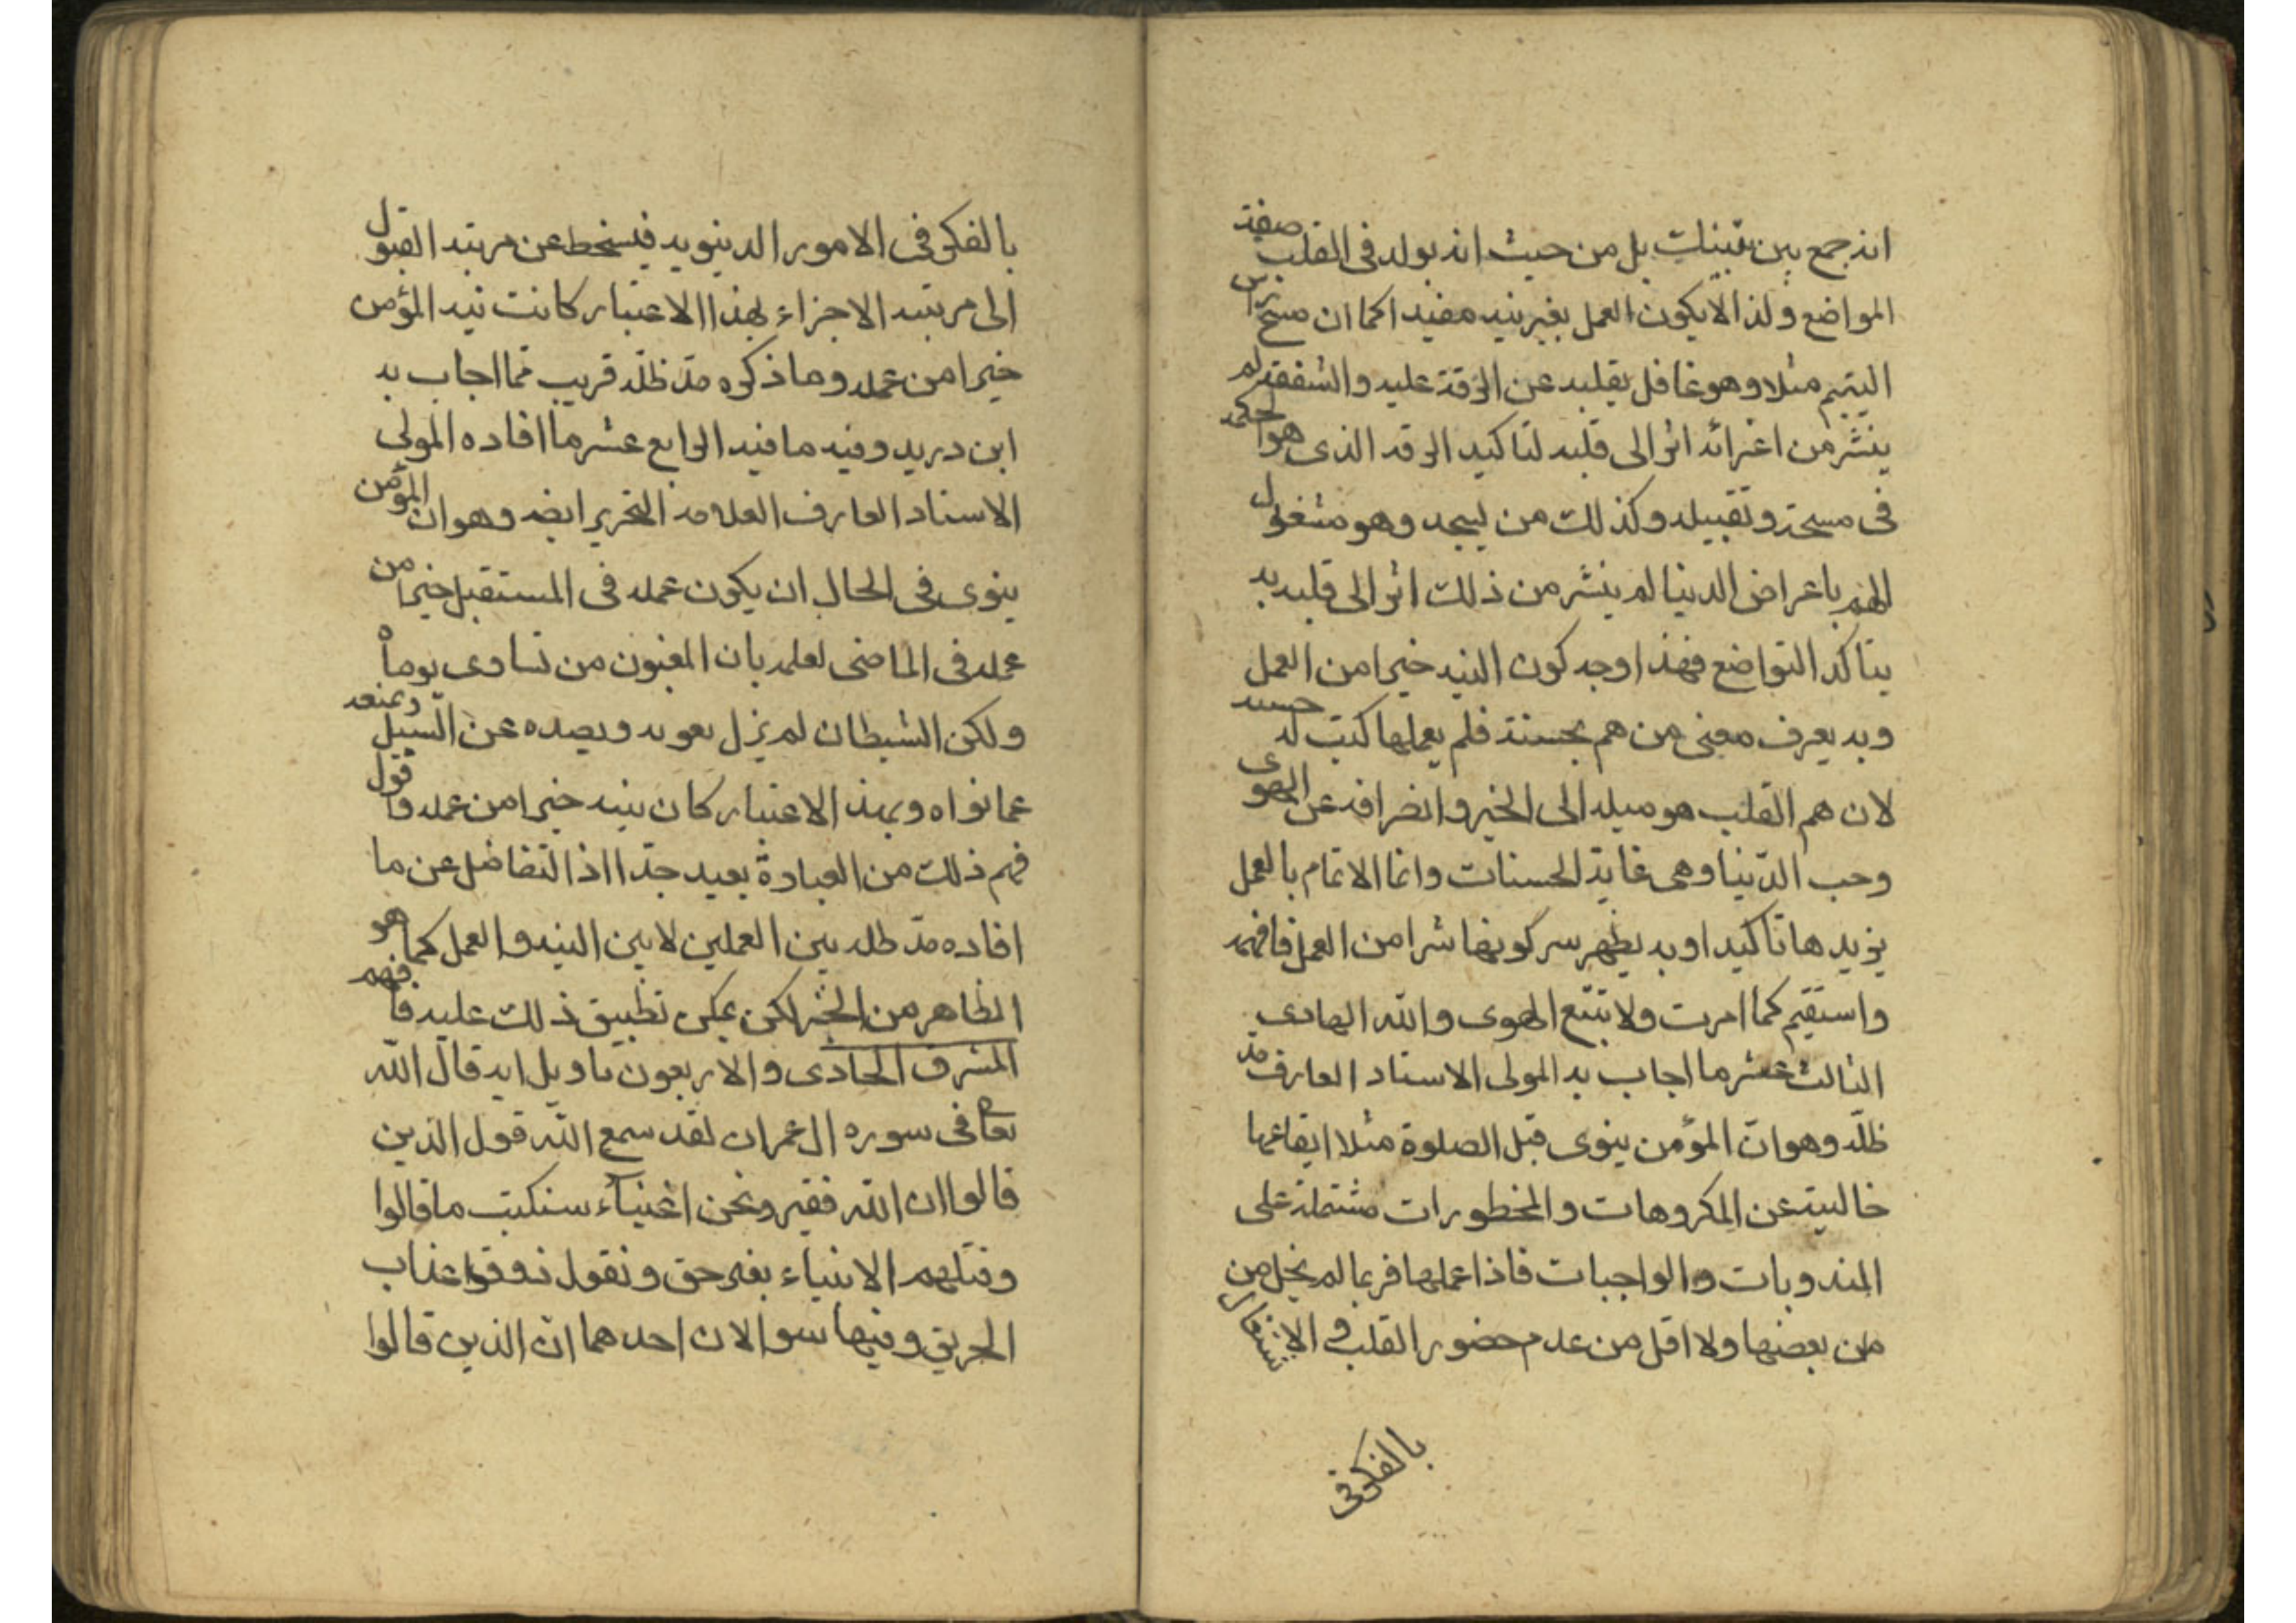 انه جمع بين نيتين بل من حيث انه يولد في القلب صفة
المواضع ولذا لا يكون العمل بغير نيه مفيدا كما ان مسح راس
اليتيم مثلا وهو غافل بقلبه عن الرقة عليه والشفقة لم
ينشر من اعزائه اثر الى قلبه لتاكيد الرقه الذى هو الحكمه
فى مسحة وتقبيله وكذلك من يسجد وهو مشغول
الهم باعراض الدنيا لم ينشر من ذلك اثر الى قلبه به
يتاكد التواضع فهذا وجه كون النيه خيرا من العمل
وبه يعرف معنى من هم بحسنة فلم يعملها كتبت له حسنه
لان هم القلب هو ميله الى الخير وانصرافه عن الهوى
وحب الدنيا وهى غاية الحسنات وانما الاتمام بالعمل
يزيدها تاكيدا وبه يظهر سر كونها شرا من العمل فافهمه
واستقيم كما امرت ولا تتبع الهوى والله الهادى
الثالث عشر ما اجاب به المولى الاستاد العارف مد
ظله وهو ان المؤمن ينوى قبل الصلوة مثلا ايقاعها
خالية عن المكروهات والمحظورات مشتملة على
المندوبات والواجبات فاذا عملها فربما لم يخل من
من بعضها ولا اقل من عدم حضور القلب و الاشتغال
بالفكر فى
بالفكر فى الامور الدينويه فينحط عن مرتبه القبول
الى مرتبه الاجزاء بهذا الاعتبار كانت نيه المؤمن
خيرا من عمله وما ذكره مد ظله قريب مما اجاب به
ابن دريد وفيه ما فيه الرابع عشر ما افاده المولى
الاستاد العارف العلامه النحرير ايضه وهو ان المؤمن
ينوى فى الحال ان يكون عمله فى المستقبل خيرا من
عمله فى الماضى لعلمه بان المغبون من تساوى يوماه
ولكن الشيطان لم يزل يعوبه ويصده عن السبيل ويمنعه
عما نواه وبهذا الاعتبار كان نيته خيرا من عمله واقول
فهم ذلك من العبارة بعيد جدا اذا التفاضل عن ما
افاده مد ظله بين العملين لا بين النيه والعمل كما هو
الظاهر من الخبر لكن يمكن تطبيق ذلك عليه فافهم
المشرق الحادى والاربعون تاويل ايه قال الله
تعا فى سوره ال عمران لقد سمع الله قول الذين
قالوا ان الله فقير ونحن اغنياء سنكتب ما قالوا
وقتلهم الانبياء بغير حق ونقول ذوقوا عذاب
الحريق وفيها سوالان احدهما ان الذين قالوا